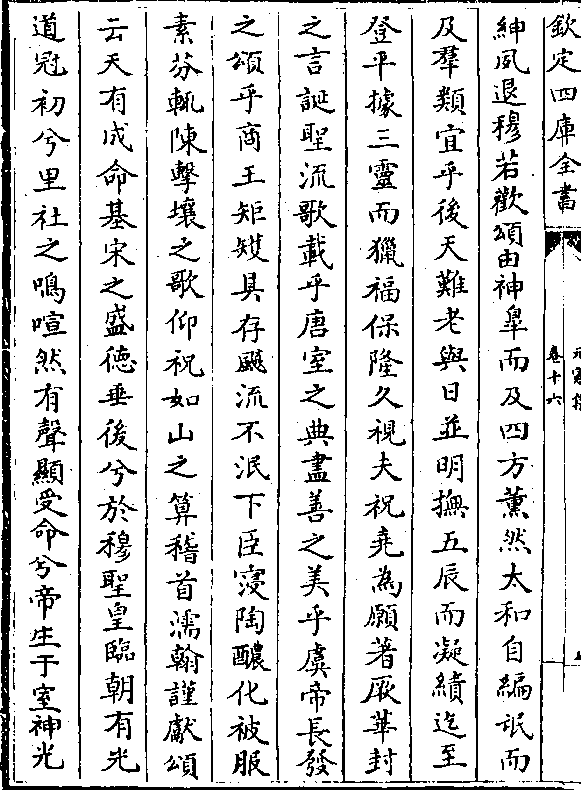 欽定四庫全書
卷十六
紳夙退穆若歡頌由神臯而及四方薰然太和自編氓而
及羣類宜乎後天難老與日並明撫五辰而凝績迄至
登平據三靈而獵福保隆久視夫祝堯為願著厥華封
之言誕聖流歌載乎唐室之典盡善之美乎虞帝長發
之頌乎商王矩矱具存飈流不泯下臣寖陶醲化被服
素芬輒陳擊壤之歌仰祝如山之算稽首濡翰謹獻頌
云天有成命基宋之盛德垂後兮於穆聖皇臨朝有光
道冠初兮里社之鳴喧然有聲顯受命兮帝生于室神光